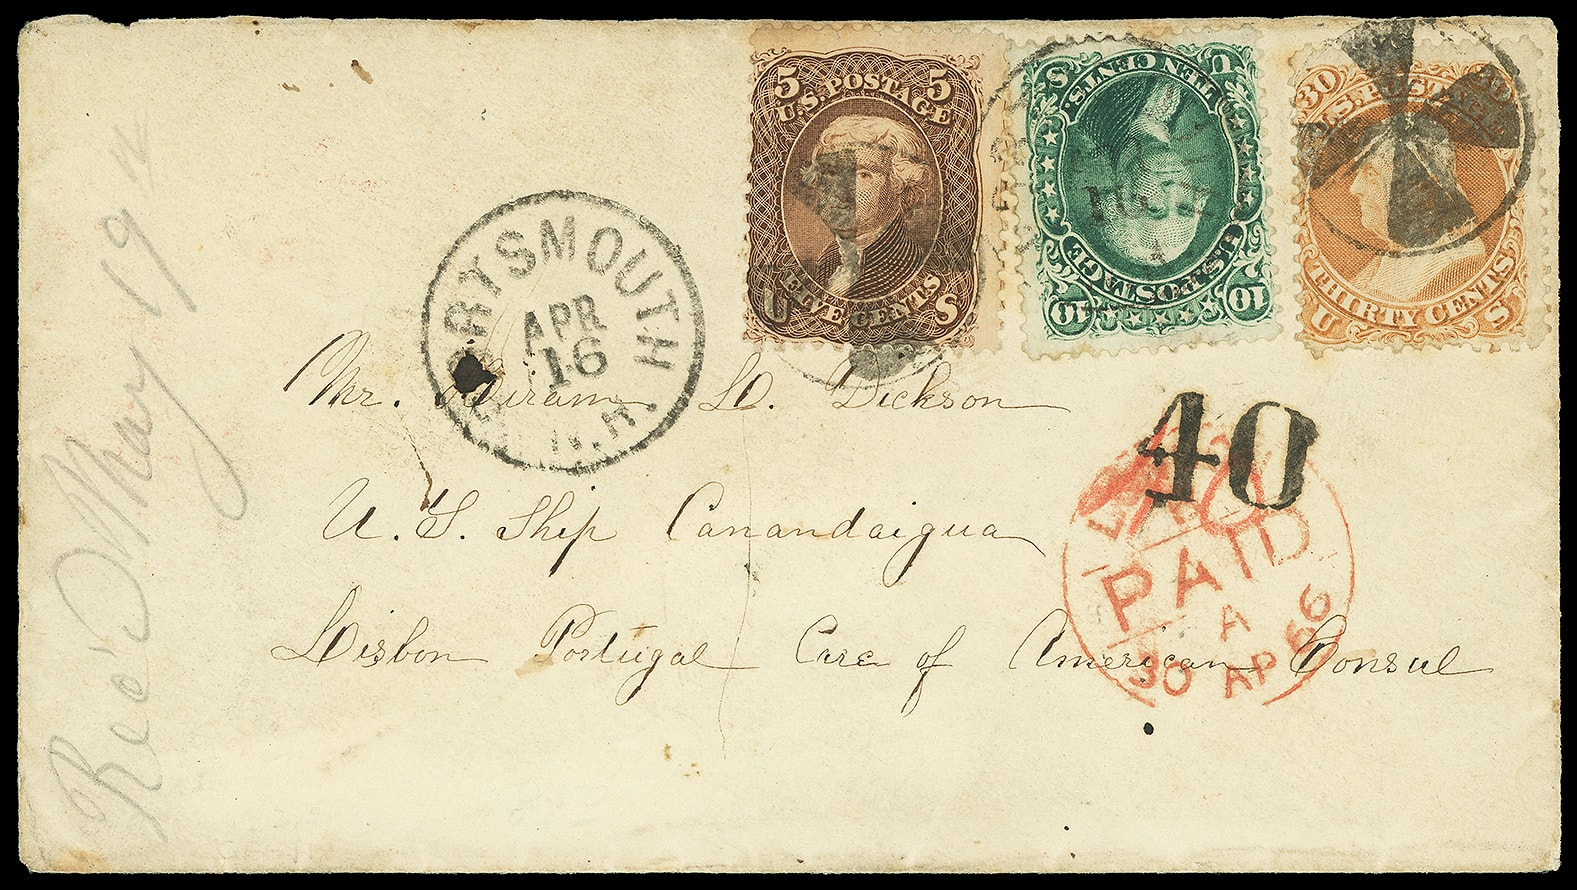 5 5
U.S. POSTAGE
U FIVE CENTS S
U.S. POSTAGE
TEN CENTS.
10 10
U S
30
U.S. POSTAGE
U THIRTY CENTS S
PORTSMOUTH
APR
16
N.H.
Mr. Hiram L. Dickson
40
U.S. Ship Canandaigua
PAID
A
30 AP 66
Lisbon Portugal Care of American Consul
Rec'd May 19